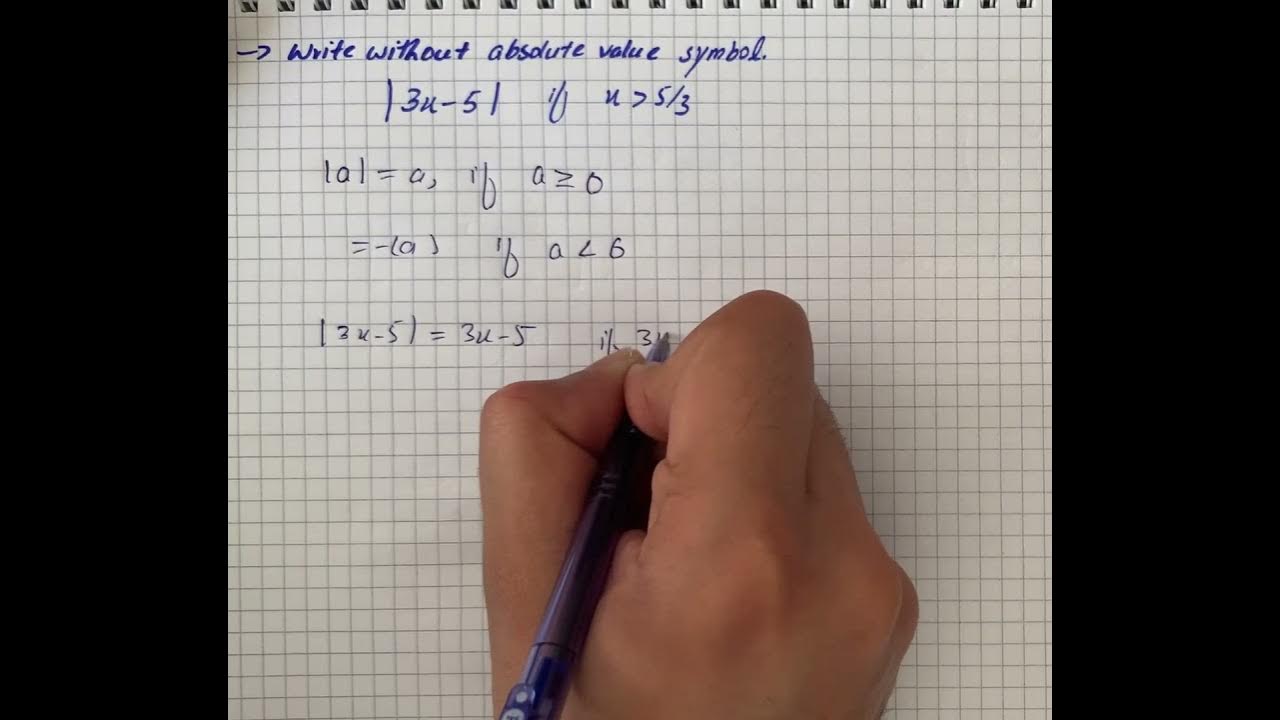 → Write without absolute value symbol.
|3x-5| if x > 5/3
|a| = a, if a ≥ 0
= -(a) if a < 0
|3x-5| = 3x-5 if 3x